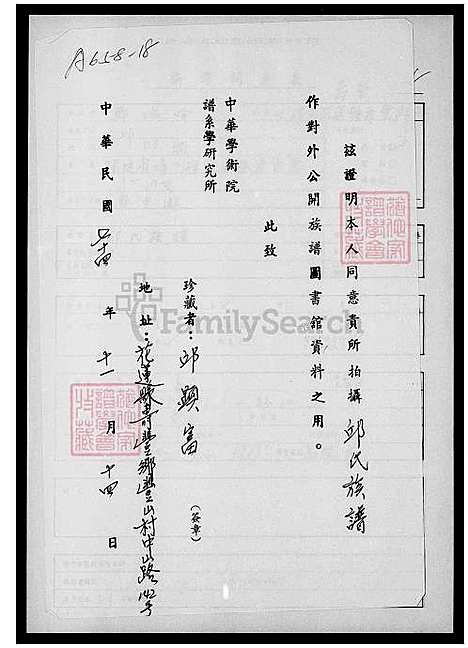 A658-18
茲證明本人同意貴所拍攝邱氏族譜
作對外公開族譜圖書館資料之用。
此致
中華學術院
譜系學研究所
珍藏者：邱顯富(簽章)
地址：花蓮縣壽豐鄉豐山村中山路142号
中華民國 年十一月十四日
FamilySearch